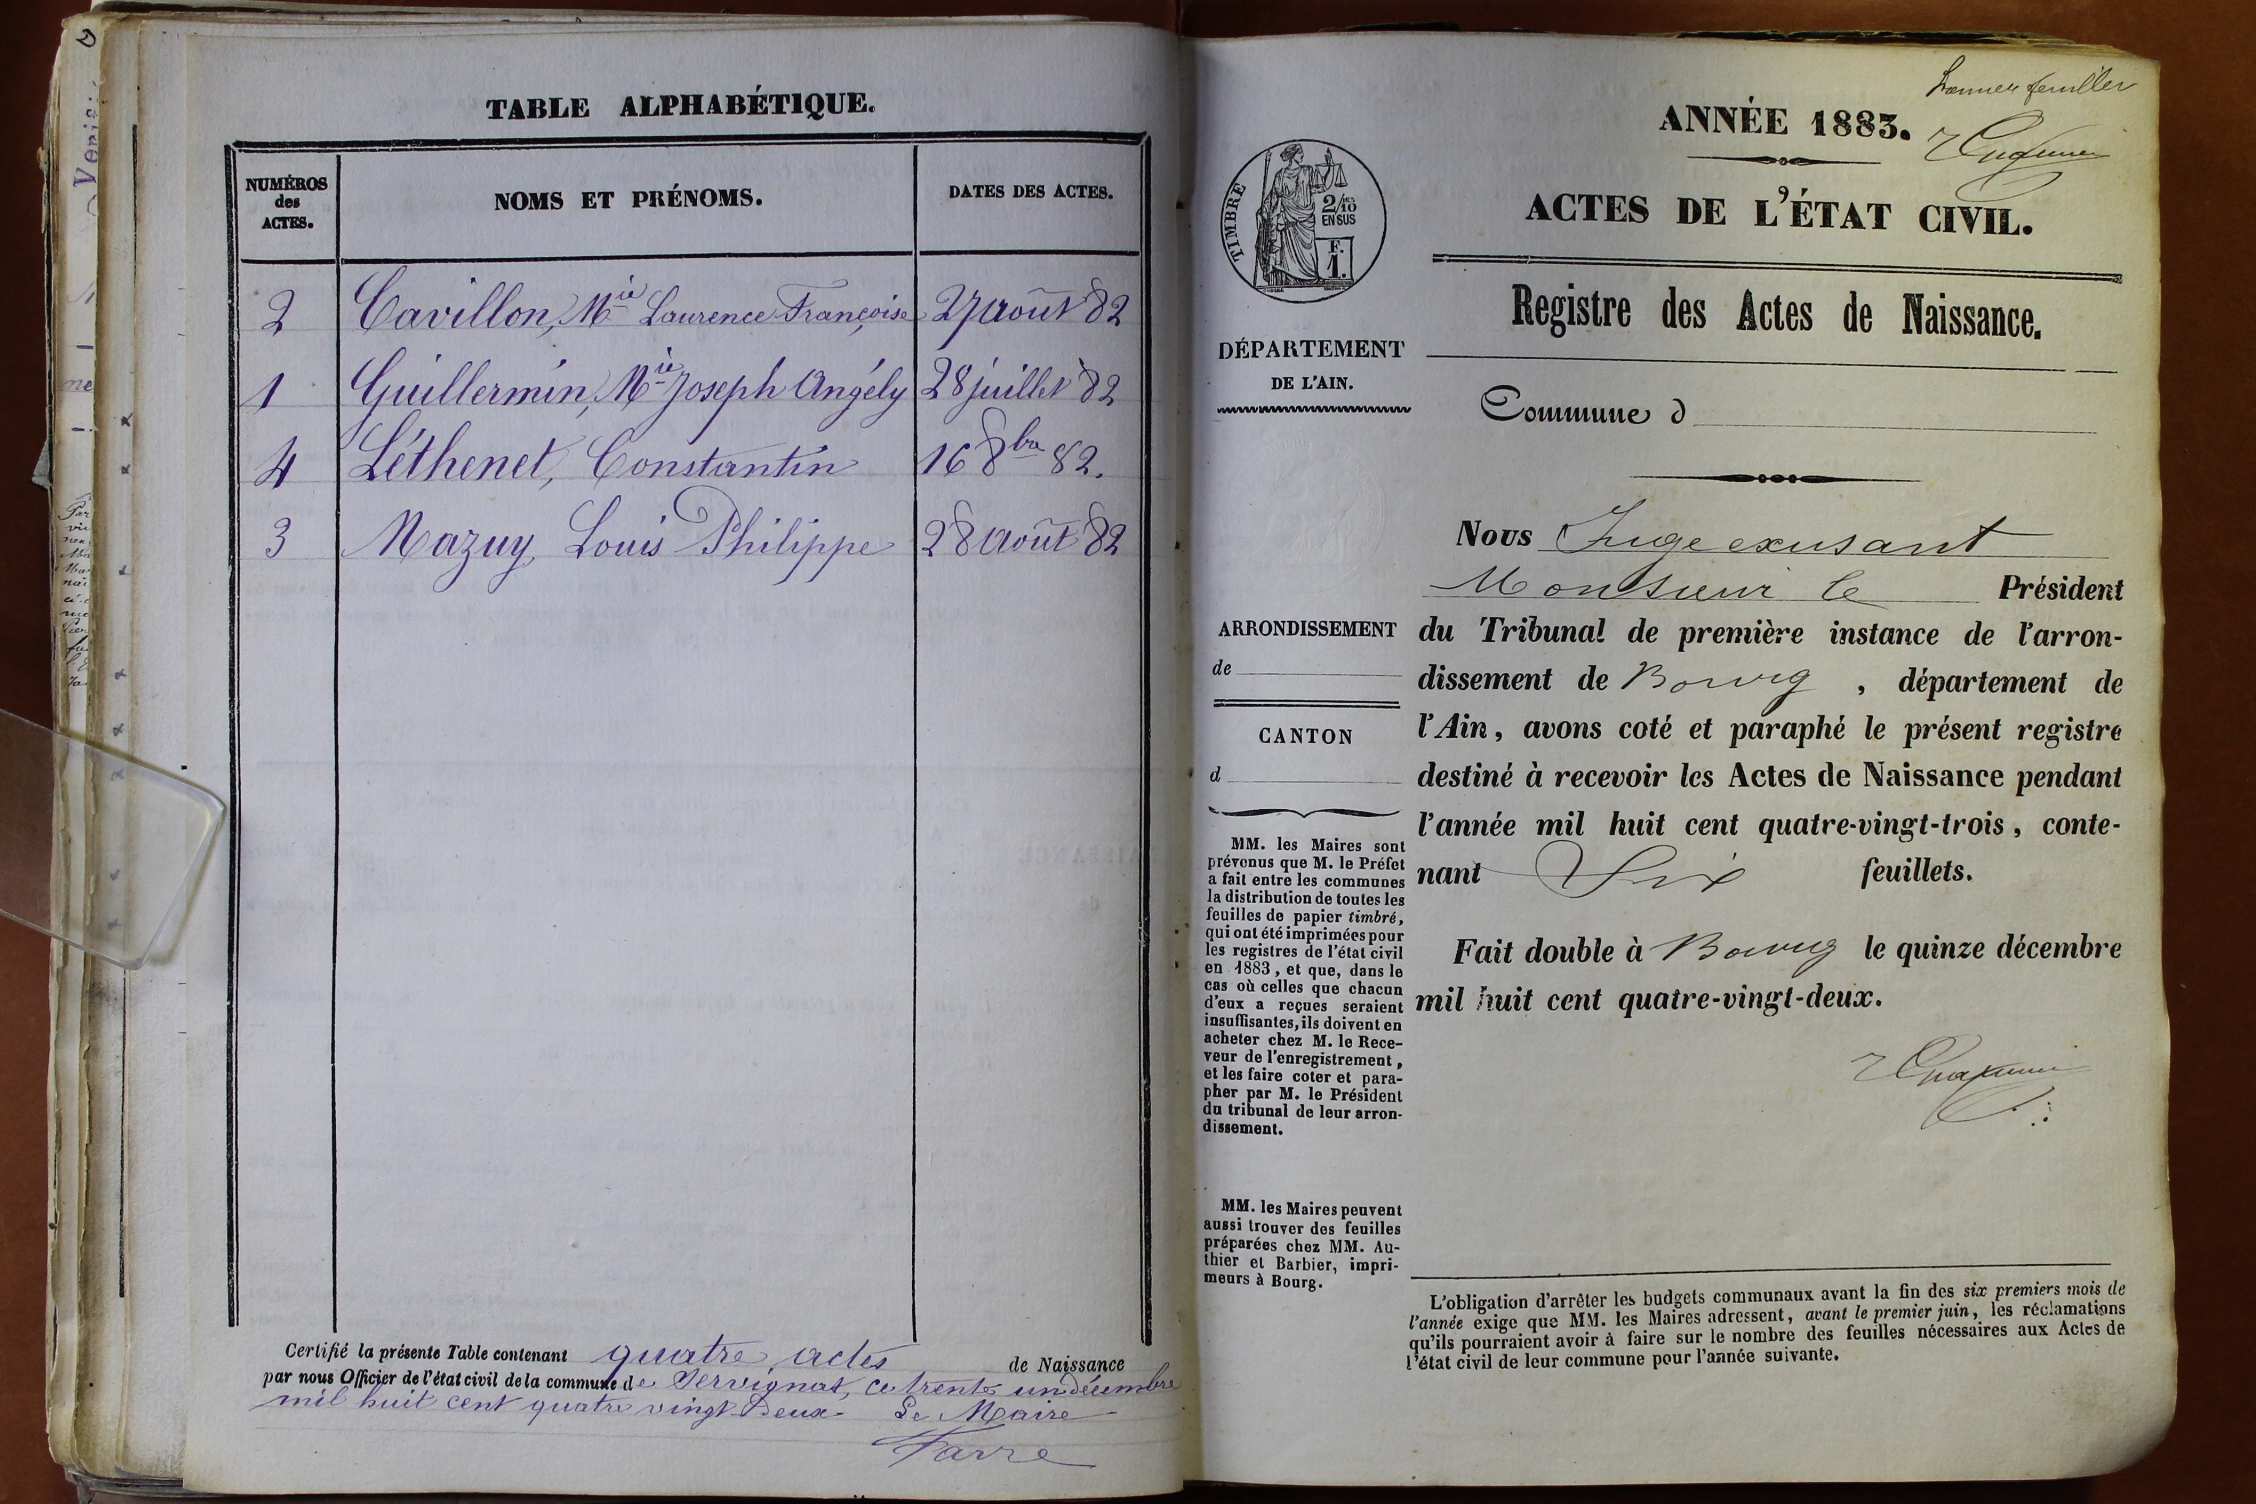 TABLE ALPHABÉTIQUE.
NUMÉROS des ACTES.
NOMS ET PRÉNOMS.
DATES DES ACTES.
2 Cavillon, Mie Laurence Françoise 27 août 82
1 Guillermin, Mie Joseph Angély 28 juillet 82
4 Léthenet, Constantin 16 8bre 82.
3 Mazuy, Louis Philippe 28 août 82
Certifié la présente Table contenant quatre actes de Naissance
par nous Officier de l'état civil de la commune de Servignat, ce trente un décembre
mil huit cent quatre vingt deux. Le Maire
Farre
ANNÉE 1883.
ACTES DE L'ÉTAT CIVIL.
TIMBRE
2/10es
EN SUS
F.
1.
DÉPARTEMENT
DE L'AIN.
Registre des Actes de Naissance.
Commune d
Nous Juge exusant
Monsieur le Président
ARRONDISSEMENT
de
du Tribunal de première instance de l'arron-
dissement de Bourg, département de
l'Ain, avons coté et paraphé le présent registre
destiné à recevoir les Actes de Naissance pendant
l'année mil huit cent quatre-vingt-trois, conte-
nant Six feuillets.
Fait double à Bourg le quinze décembre
mil huit cent quatre-vingt-deux.
CANTON
d
MM. les Maires sont
prévenus que M. le Préfet
a fait entre les communes
la distribution de toutes les
feuilles de papier timbré,
qui ont été imprimées pour
les registres de l'état civil
en 1883, et que, dans le
cas où celles que chacun
d'eux a reçues seraient
insuffisantes, ils doivent en
acheter chez M. le Rece-
veur de l'enregistrement,
et les faire coter et para-
pher par M. le Président
du tribunal de leur arron-
dissement.
MM. les Maires peuvent
aussi trouver des feuilles
préparées chez MM. Au-
thier et Barbier, impri-
meurs à Bourg.
L'obligation d'arrêter les budgets communaux avant la fin des six premiers mois de
l'année exige que MM. les Maires adressent, avant le premier juin, les réclamations
qu'ils pourraient avoir à faire sur le nombre des feuilles nécessaires aux Actes de
l'état civil de leur commune pour l'année suivante.